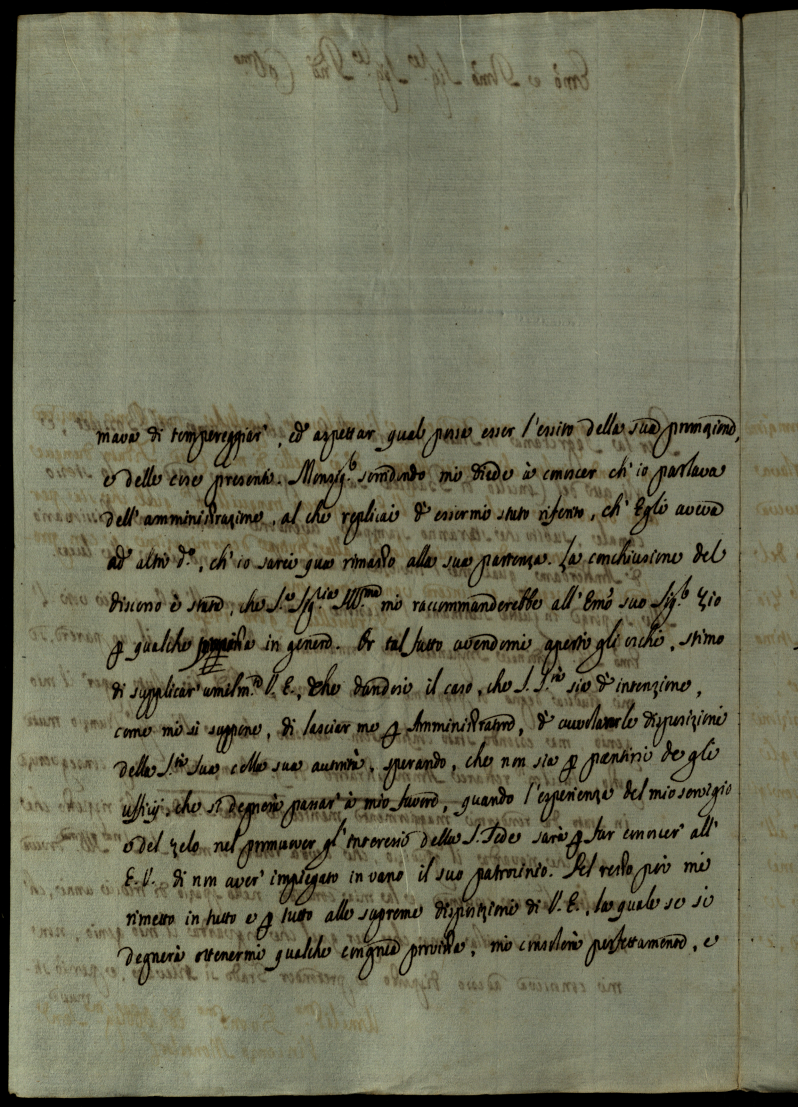 mava di temporeggiar', ed aspettar qual possa esser l'essito della sua promozione,
e delle cose presenti. Monsig.r sorridendo mi diede à conoscer ch'io parlava
dell'amministrazione, al che replicai d'essermi stato riferito, ch'Egli aveva
ad' altri d.o, ch'io sarei qua rimasto alla sua partenza. La conchiusione del
discorso è stata, che S.a Sig.ria Ill.ma mi raccommanderebbe all'Emo suo Sig.r Zio
p qualche in genere. Or tal fatto avendomi aperto gli occhi, stimo
di supplicar' umilm.te V. E., che dandosi il caso, che S. S.tà sia d'intenzione,
come mi si suppone, di lasciar me p Amministratore, d'avvalorar le disposizioni
della S.tà Sua colla sua autorità, sperando, che non sia p pentirsi de gli
ufficij, che si degnerà passar' à mio favore, quando l'esperienza del mio servigio
e del zelo nel promuover gl'interessi della S. Sede sarà p far conoscer' all'
E. V. di non aver' impiegato in vano il suo patrocinio. Pel resto poi mi
rimetto in tutto e p tutto alle supreme disposizioni di V. E., la quale se si
degnerà ottenermi qualche congrua provista, mi consolerà perfettamente, e